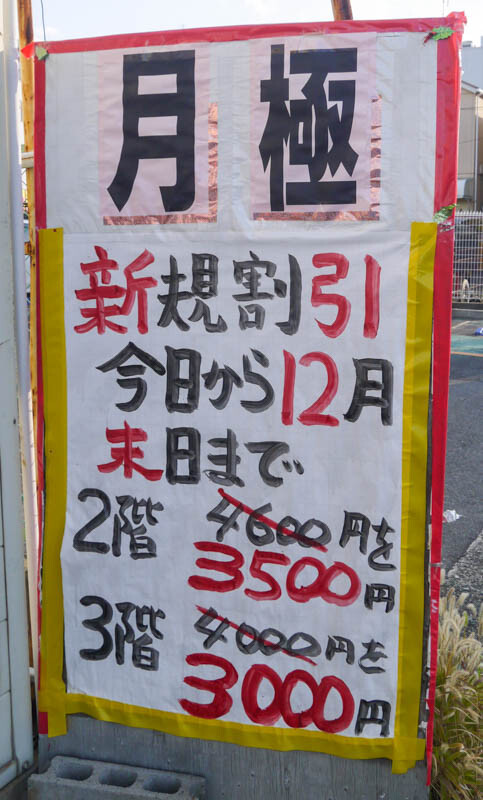 月極
新規割引
今日から12月
末日まで
2階 4600円を
3500円
3階 4000円を
3000円